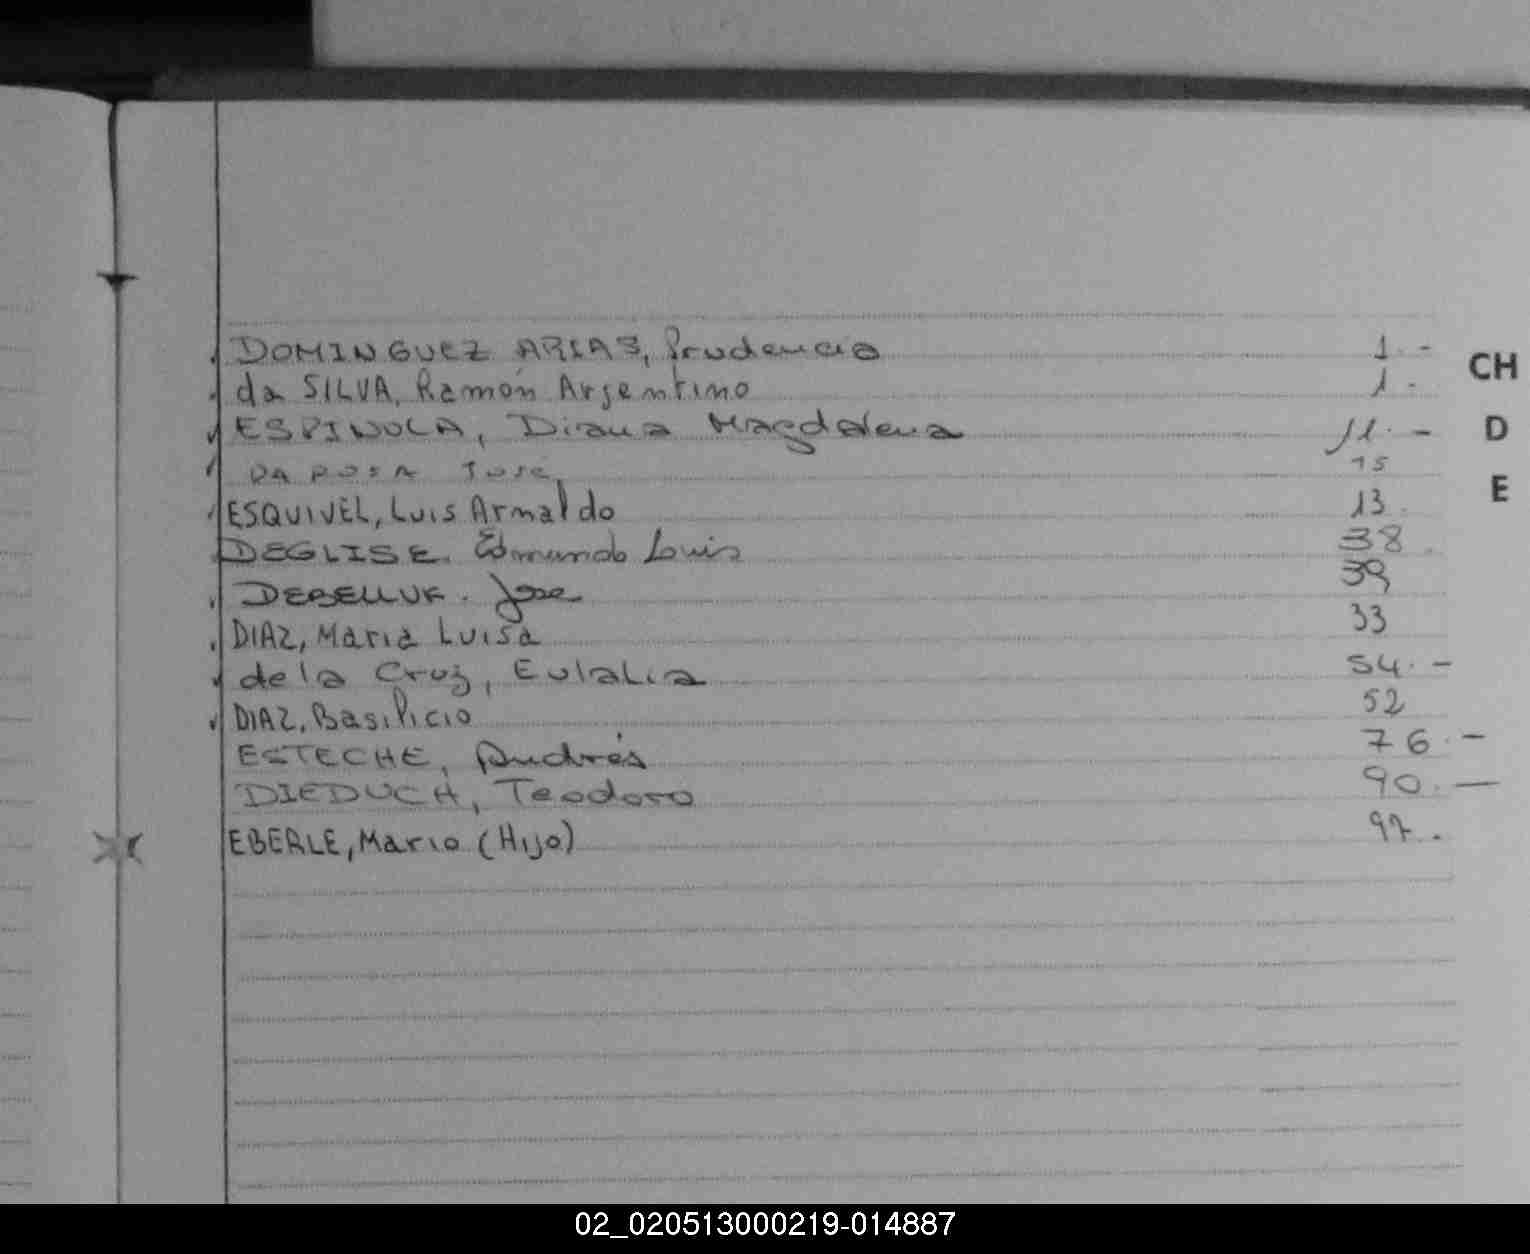 DOMINGUEZ ARIAS, Prudencia 1.-
da SILVA, Ramón Argentino 1.
ESPINOLA, Diana Magdalena 11.-
DA ROSA José 15
ESQUIVEL, Luis Armaldo 13.
DEGLISE. Edmundo Luis 38.
DEBELLUK. Jose 39
DIAZ, Maria Luisa 33
de la Cruz, Eulalia 54.-
DIAZ, Basilicio 52
ESTECHE, Andrés 76.-
DIEDUCH, Teodoro 90.-
EBERLE, Mario (Hijo) 97.
CH
D
E
02_020513000219-014887